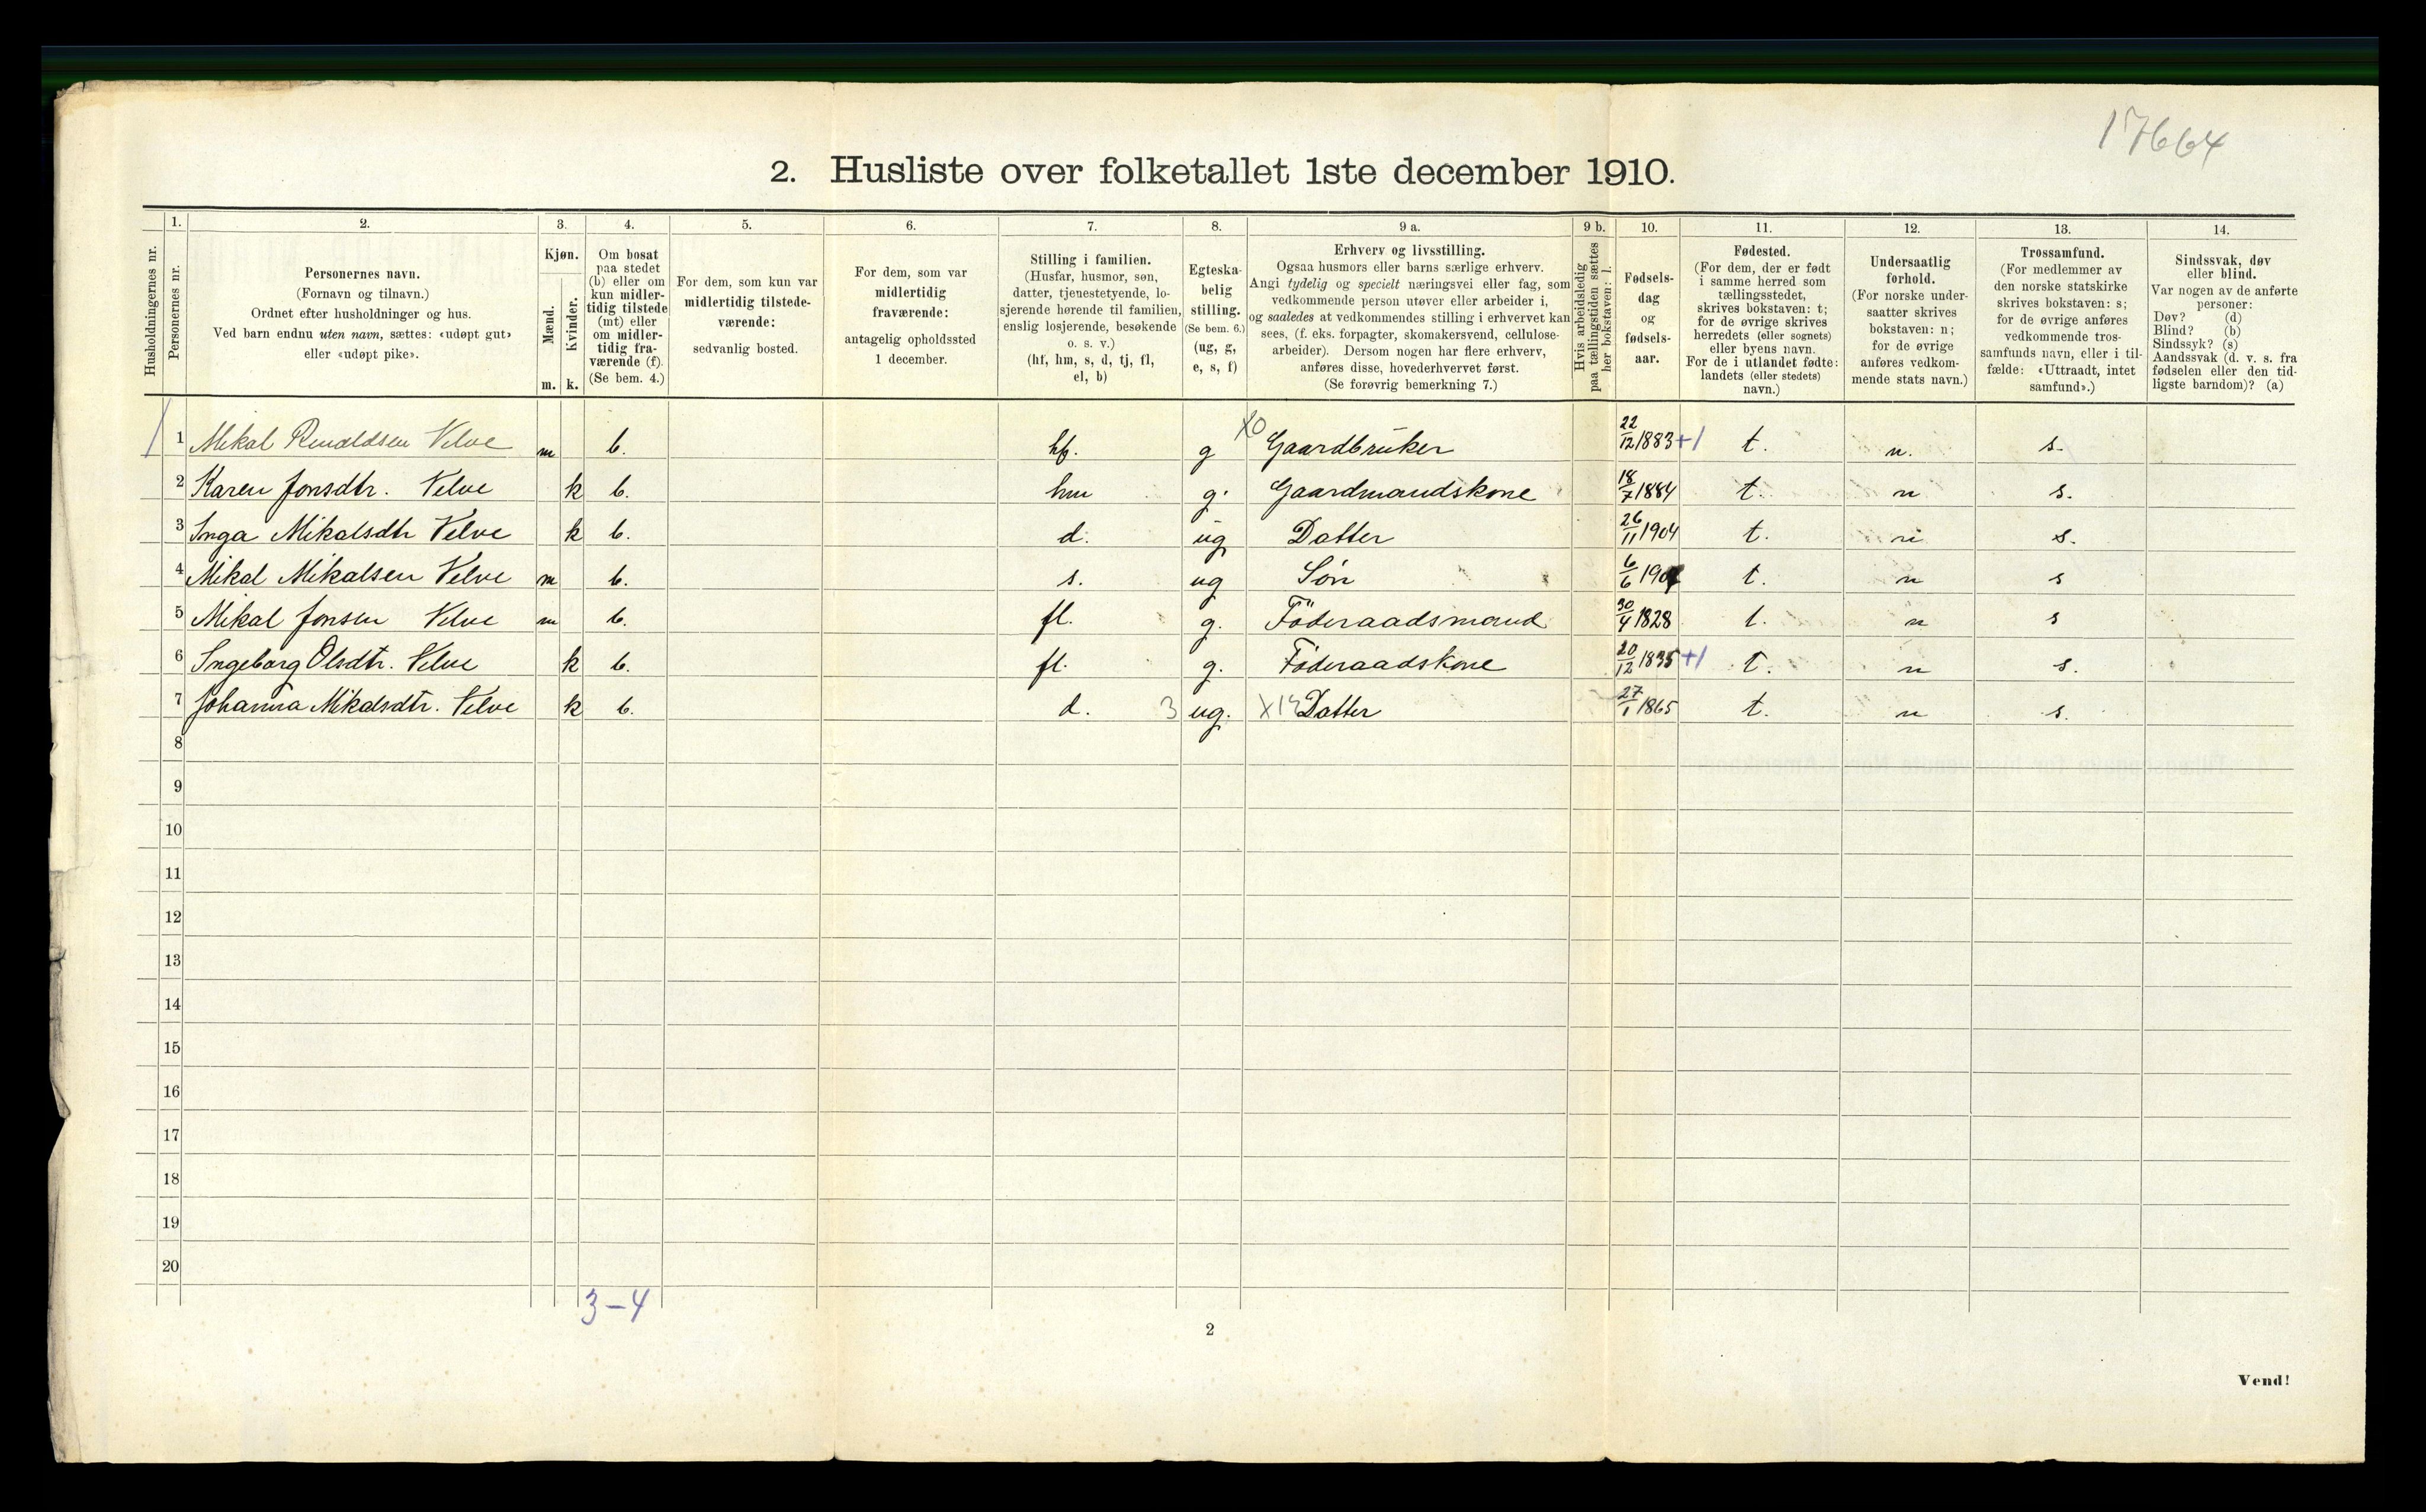 17664
2. Husliste over folketallet 1ste december 1910.
1. 2. 3. 4. 5. 6. 7. 8. 9 a. 9 b. 10. 11. 12. 13. 14.
Husholdningernes nr.
Personernes nr.
Personernes navn.
(Fornavn og tilnavn.)
Ordnet efter husholdninger og hus.
Ved barn endnu uten navn, sættes: «udøpt gut»
eller «udøpt pike».
Kjøn.
Mænd.
Kvinder.
m. k.
Om bosat
paa stedet
(b) eller om
kun midler-
tidig tilstede
(mt) eller
om midler-
tidig fra-
værende (f).
(Se bem. 4.)
For dem, som kun var
midlertidig tilstede-
værende:
sedvanlig bosted.
For dem, som var
midlertidig
fraværende:
antagelig opholdssted
1 december.
Stilling i familien.
(Husfar, husmor, søn,
datter, tjenestetyende, lo-
sjerende hørende til familien,
enslig losjerende, besøkende
o. s. v.)
(hf, hm, s, d, tj, fl,
el, b)
Egteska-
belig
stilling.
(Se bem. 6.)
(ug, g,
e, s, f)
Erhverv og livsstilling.
Ogsaa husmors eller barns særlige erhverv.
Angi tydelig og specielt næringsvei eller fag, som
vedkommende person utøver eller arbeider i,
og saaledes at vedkommendes stilling i erhvervet kan
sees, (f. eks. forpagter, skomakersvend, cellulose-
arbeider). Dersom nogen har flere erhverv,
anføres disse, hovederhvervet først.
(Se forøvrig bemerkning 7.)
Hvis arbeidsledig
paa tællingstiden sættes
her bokstaven: l.
Fødsels-
dag
og
fødsels-
aar.
Fødested.
(For dem, der er født
i samme herred som
tællingsstedet,
skrives bokstaven: t;
for de øvrige skrives
herredets (eller sognets)
eller byens navn.
For de i utlandet fødte:
landets (eller stedets)
navn.)
Undersaatlig
forhold.
(For norske under-
saatter skrives
bokstaven: n;
for de øvrige
anføres vedkom-
mende stats navn.)
Trossamfund.
(For medlemmer av
den norske statskirke
skrives bokstaven: s;
for de øvrige anføres
vedkommende tros-
samfunds navn, eller i til-
fælde: «Uttraadt, intet
samfund».)
Sindssvak, døv
eller blind.
Var nogen av de anførte
personer:
Døv? (d)
Blind? (b)
Sindssyk? (s)
Aandssvak (d. v. s. fra
fødselen eller den tid-
ligste barndom)? (a)
1 Mikal Velve m b. hf. g X0 Gaardbruker 22/12 1883 +1 t. n. s.
2 Karen Jonsdtr. Velve k b. hm g. Gaardmandskone 18/7 1884 t. n s.
3 Inga Mikalsdtr Velve k b. d. ug Datter 26/11 1904 t. n s.
4 Mikal Mikalsen Velve m b. s. ug Søn 6/6 t. n s
5 Mikal Jonsen Velve m b. fl. g. Föderaadsmand 30/4 1828 t. n s
6 Ingeborg Olsdtr. Velve k b. fl. g. Föderaadskone 20/12 1835 +1 t. n s.
7 Johanna Mikalsdtr. Velve k b. d. 3 ug. Datter 27/1 1865 t. n s.
8
9
10
11
12
13
14
15
16
17
18
19
20
3-4
2
Vend!